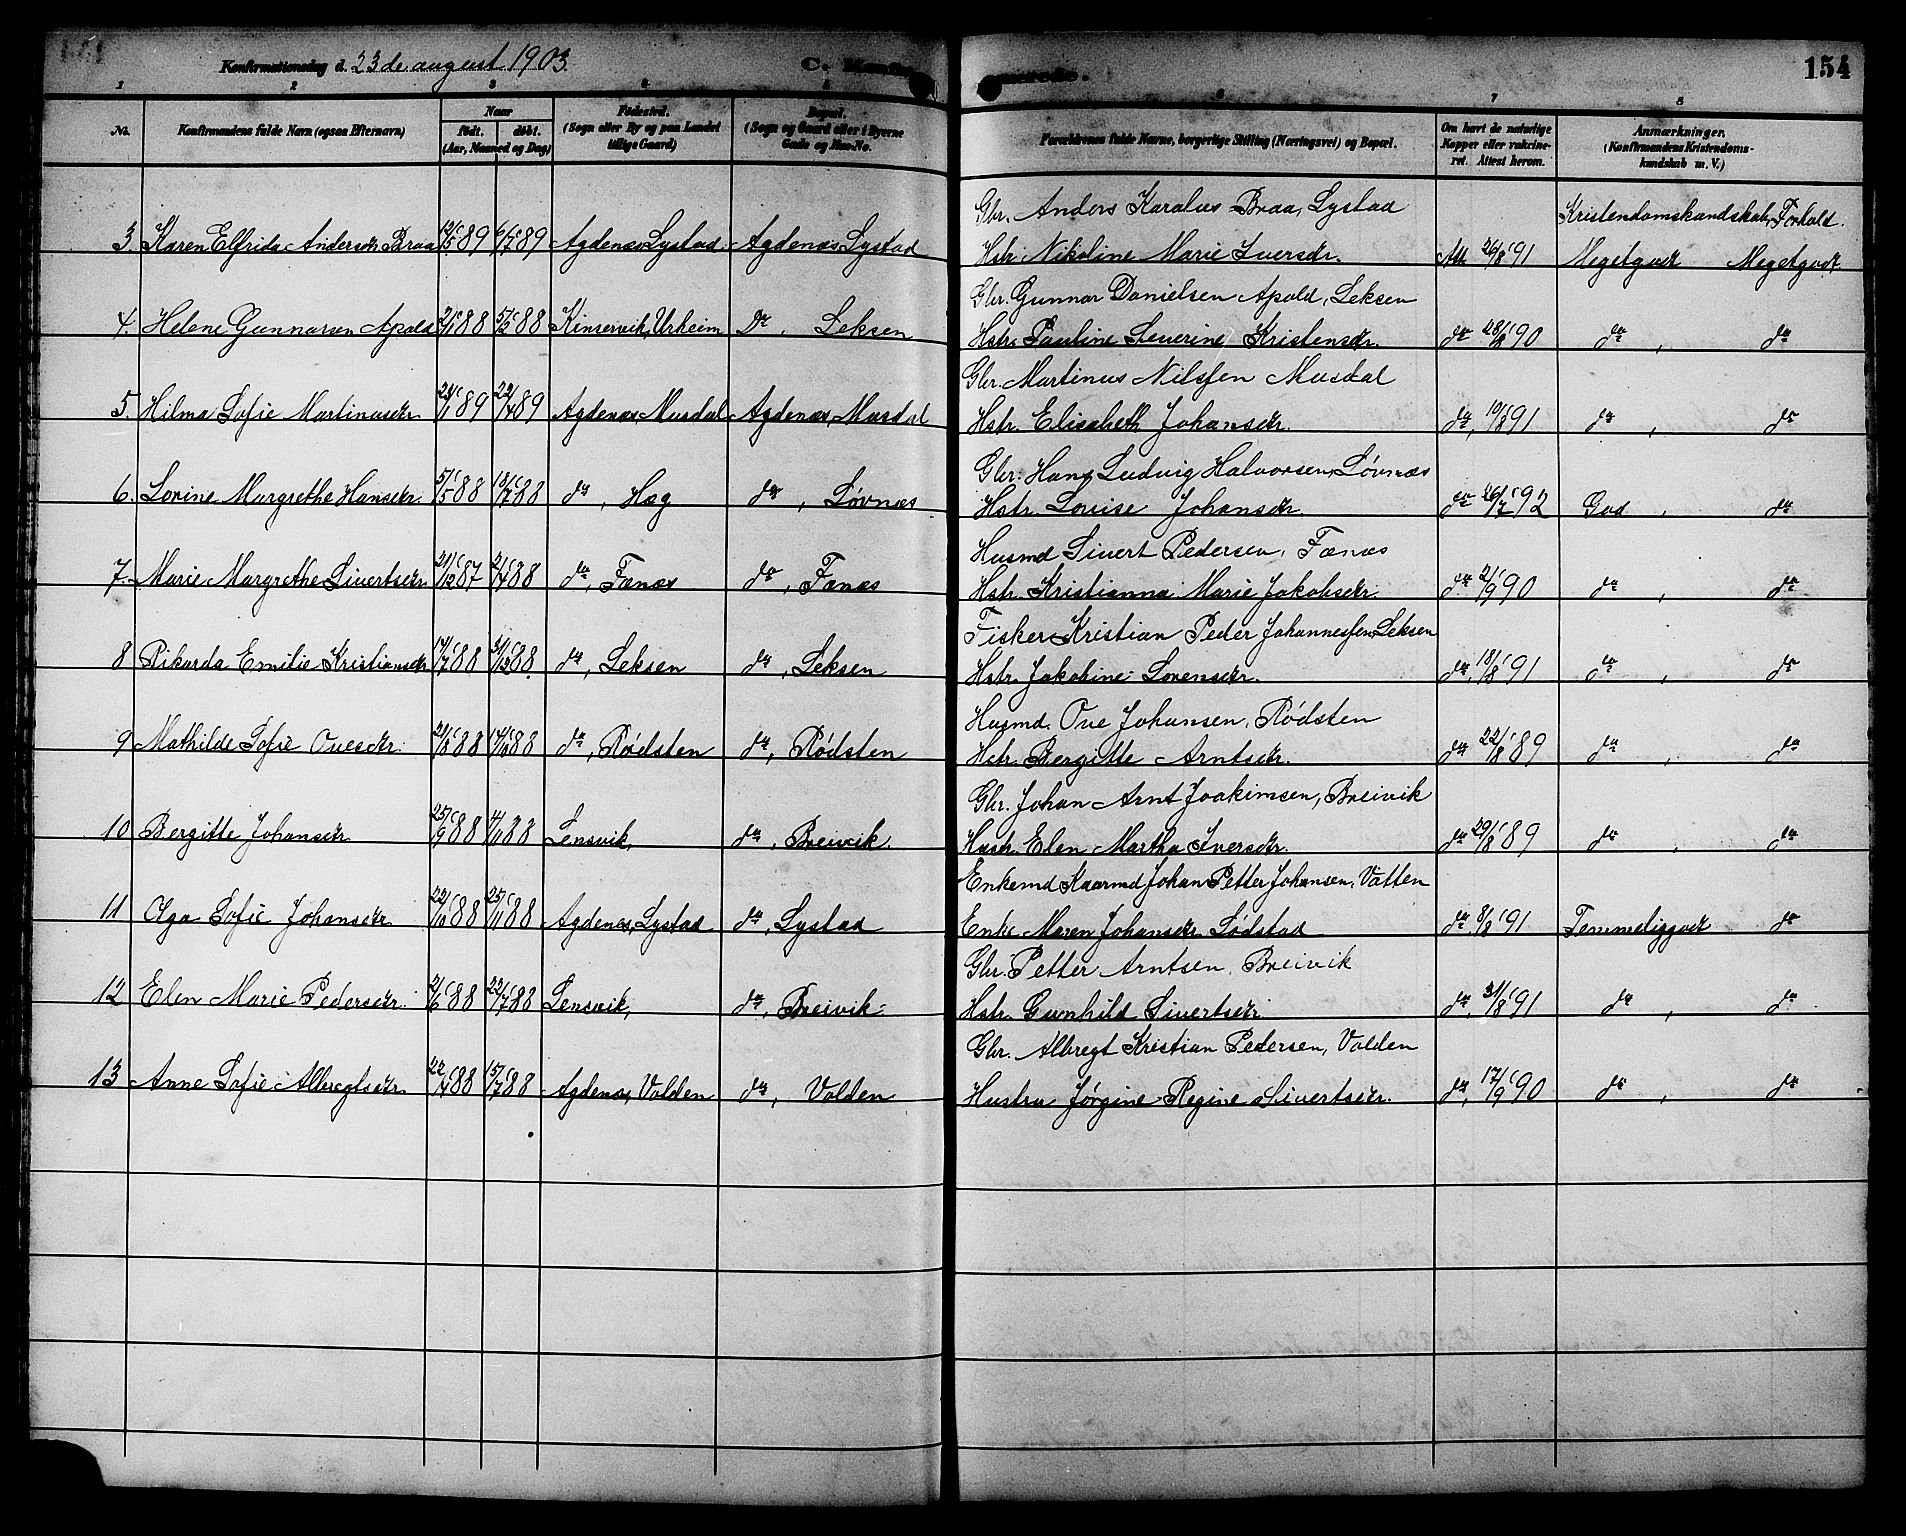 Konfirmationsdag d. 23de august 1903.
C. Konfirmerede.
154
1 2 3 4 5 6 7 8
No.
Konfirmandens fulde Navn (ogsaa Efternavn)
Naar
født. døbt.
(Aar, Maaned og Dag)
Fødested.
(Sogn eller By og paa Landet
tillige Gaard)
Bopæl.
(Sogn og Gaard eller i Byerne
Gade og Hus-No.
Forældrenes fulde Navne, borgerlige Stilling (Næringsvei) og Bopæl.
Om havt de naturlige
Kopper eller vakcine-
ret. Attest herom.
Anmærkninger.
(Konfirmandens Kristendoms-
kundskab m. V.)
Gbr. Anders Karolus Braa, Lystad
Kristendomskundskab, Forhold.
3. Karen Elfrida Andersdr. Braa 12/5 89 6/7 89 Agdenes, Lystad Agdenes, Lystad Hstr. Nikoline Marie Iversdr. Att. 26/8 91 Megetgodt Megetgodt
Gbr. Gunnar Danielsen Apold, Leksen
4. Helene Gunnarsen Apold 2/1 88 5/2 88 Kinservik, Urheim Do, Leksen Hstr. Pauline Severine Kristensdr. do 28/8 90 do, do
Gbr. Martinus Nilssen Musdal
5. Hilma Sofie Martinusdr. 24/1 89 22/4 89 Agdenes, Musdal Agdenes, Musdal Hstr. Elisabeth Johansdr. do, 19/8 91 do, do
Gbr. Hans Ludvig Halvorsen, Løvnæs
6. Lorine Margrethe Hansdr. 5/5 88 18/7 88 do, Hæg do, Løvnæs Hstr. Louise Johansdr. do 26/7 92 God, do
Husmd Sivert Pedersen, Fænæs
7. Marie Margrethe Sivertsdr. 21/12 87 2/4 88 do, Fænæs do, Fænæs Hstr. Kristianna Marie Jakobsdr. do 2/9 90 do, do
Fisker Kristian Peder Johannessen, Leksen
8 Rikarda Emilie Kristiansdr. 14/7 88 31/12 88. do, Leksen do, Leksen Hstr. Jakobine Lorensdr. do, 18/8 91 do, do
Husmd. Ove Johansen, Rødsten
9 Mathilde Sofie Ovesdr. 21/8 88 14/10 88 do, Rødsten do, Rødsten Hstr. Bergitte Arntsdr. do 22/8 89 do, do
Gbr. Johan Arnt Joakimsen, Breivik
10 Bergitte Johansdr. 25/9 88 4/11 88 Lensvik, do, Breivik. Hustr. Elen Martha Iversdr. do 29/8 89 do, do
Enkemd Kaarmd Johan Petter Johansen, Vatten
11 Olga Sofie Johansdr. 22/10 88 25/11 88 Agdenes, Lystad do, Lystad Enke Maren Johansdr. Lødstad do, 8/8 91 Temmeliggodt do
Gbr. Petter Arntsen, Breivik
12 Elen Marie Pedersdr. 2/6 88 22/7 88 Lensvik, do, Breivik. Hstr. Gunhild Sivertsdr do, 31/8 91 do, do
Gbr. Albregt Kristian Pedersen, Volden
13 Anne Sofie Albregtsdr. 22/4 88 15/7 88 Agdenes, Volden do, Volden Hustru Jørgine Regine Sivertsdr. do, 17/9 90 do, do